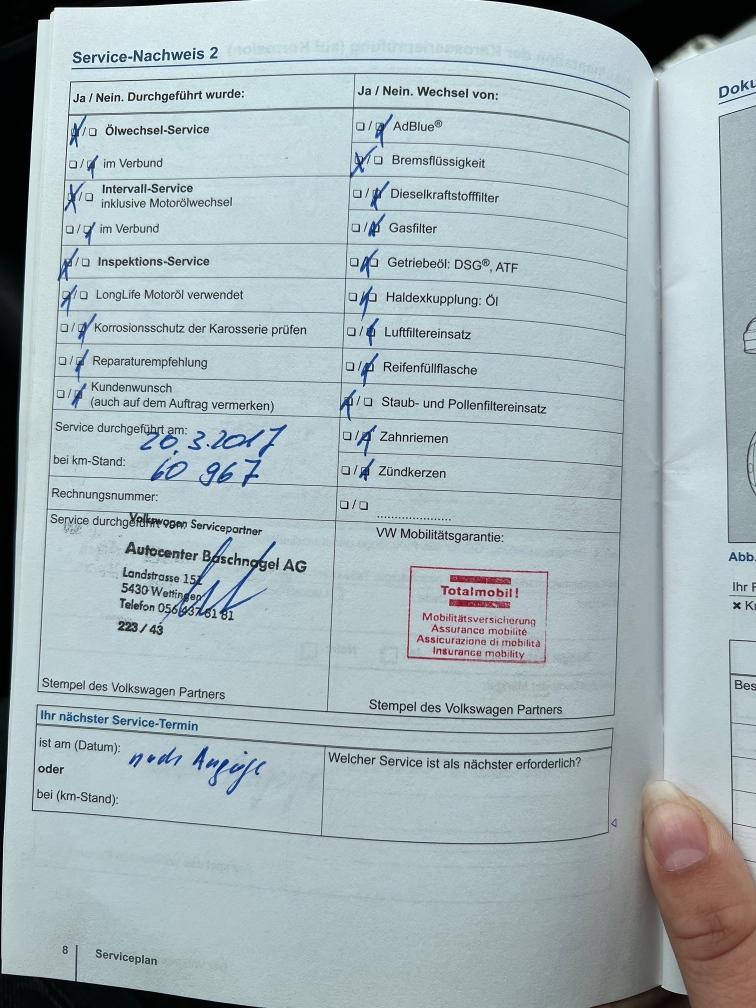 Service-Nachweis 2
Ja / Nein. Durchgeführt wurde:
☒/☐ Ölwechsel-Service
☐/☒ im Verbund
☒/☐ Intervall-Service
inklusive Motorölwechsel
☐/☒ im Verbund
☒/☐ Inspektions-Service
☒/☐ LongLife Motoröl verwendet
☐/☒ Korrosionsschutz der Karosserie prüfen
☐/☒ Reparaturempfehlung
☐/☒ Kundenwunsch
(auch auf dem Auftrag vermerken)
Service durchgeführt am: 20.3.2017
bei km-Stand: 60 967
Rechnungsnummer:
Service durchgeführt von:
Volkswagen Servicepartner
Autocenter Baschnagel AG
Landstrasse 151
5430 Wettingen
Telefon 056/437 81 81
223 / 43
Stempel des Volkswagen Partners
Ja / Nein. Wechsel von:
☐/☒ AdBlue®
☒/☐ Bremsflüssigkeit
☐/☒ Dieselkraftstofffilter
☐/☒ Gasfilter
☐/☒ Getriebeöl: DSG®, ATF
☐/☒ Haldexkupplung: Öl
☐/☒ Luftfiltereinsatz
☐/☒ Reifenfüllflasche
☒/☐ Staub- und Pollenfiltereinsatz
☐/☒ Zahnriemen
☐/☒ Zündkerzen
☐/☐ ....................
VW Mobilitätsgarantie:
Totalmobil!
Mobilitätsversicherung
Assurance mobilité
Assicurazione di mobilità
Insurance mobility
Stempel des Volkswagen Partners
Ihr nächster Service-Termin
ist am (Datum): nach Anzeige
oder
bei (km-Stand):
Welcher Service ist als nächster erforderlich?
8 Serviceplan
Doku
Abb.
Ihr F
× Kr
Bes